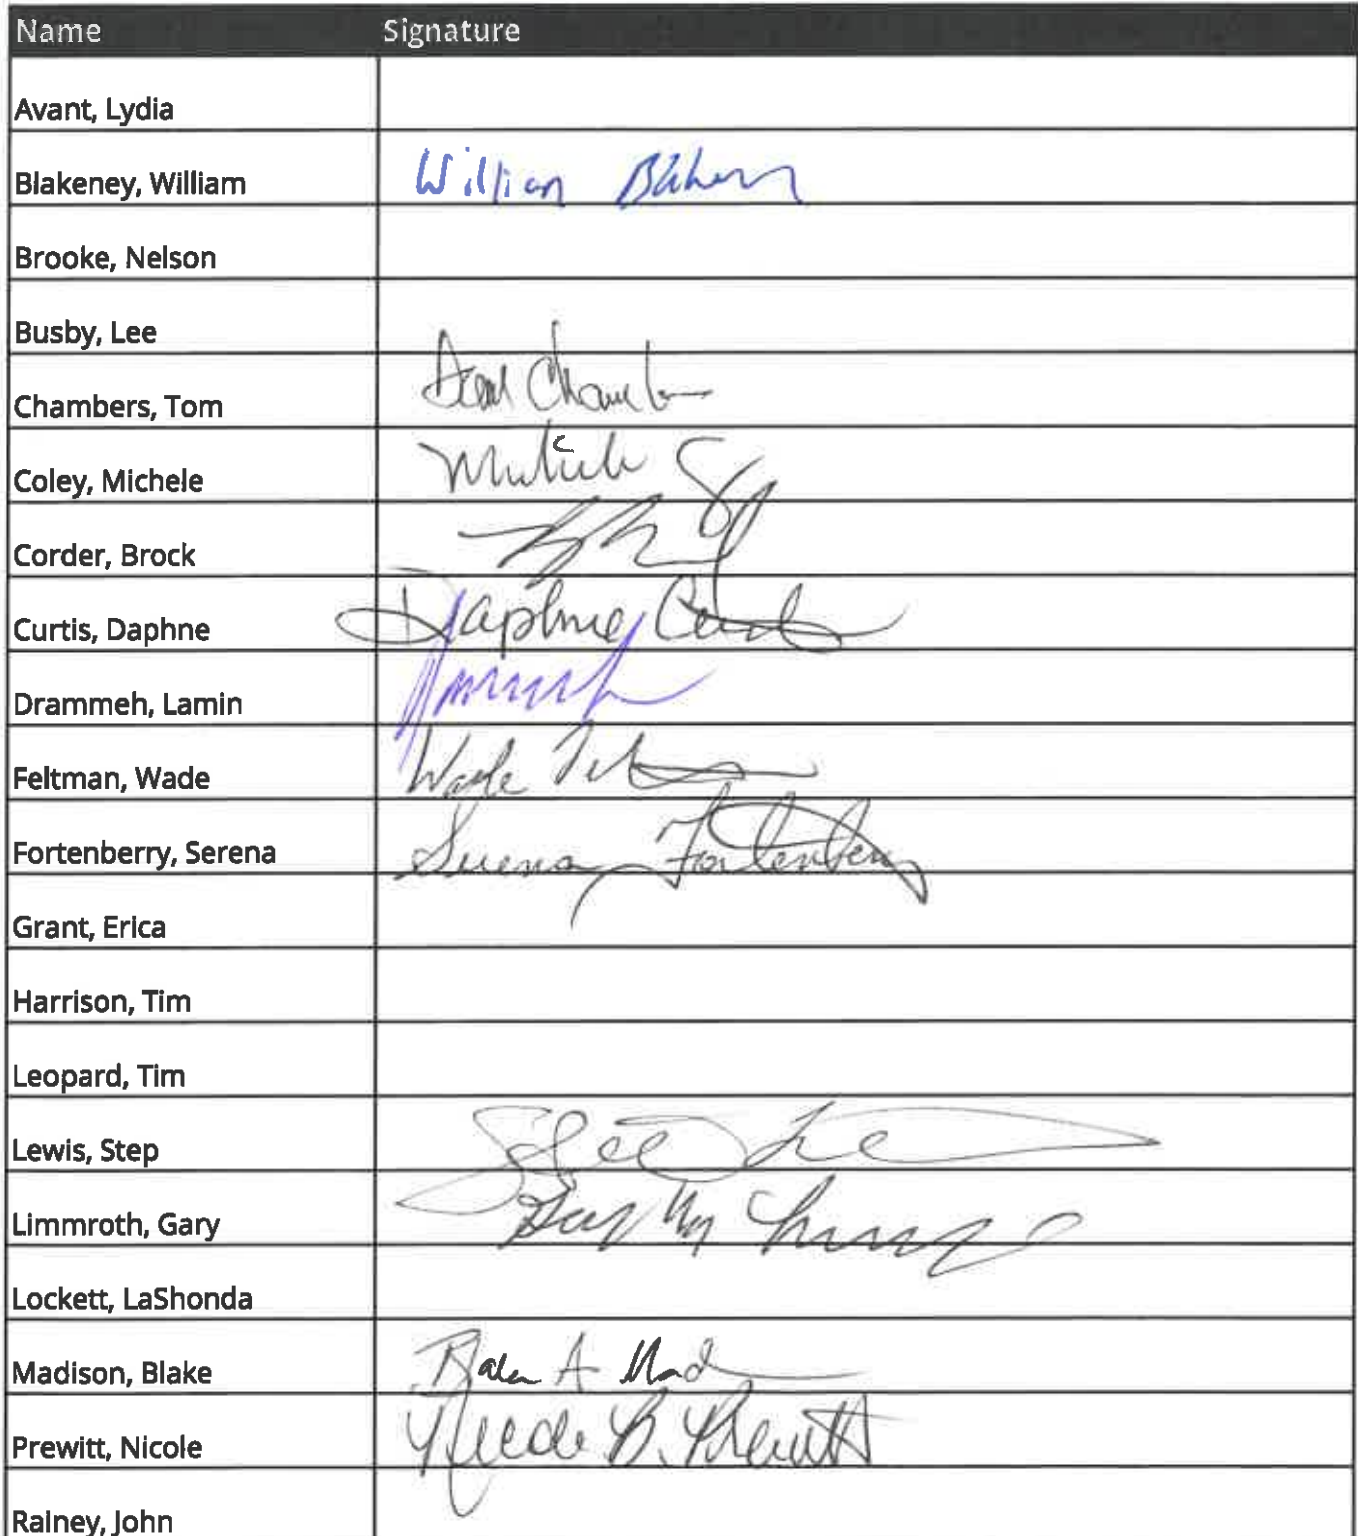 Name Signature
Avant, Lydia
Blakeney, William William
Brooke, Nelson
Busby, Lee
Chambers, Tom
Coley, Michele Michele
Corder, Brock
Curtis, Daphne Daphne Curtis
Drammeh, Lamin
Feltman, Wade Wade
Fortenberry, Serena Serena Fortenberry
Grant, Erica
Harrison, Tim
Leopard, Tim
Lewis, Step
Limmroth, Gary Gary
Lockett, LaShonda
Madison, Blake A
Prewitt, Nicole Nicole B. Prewitt
Rainey, John